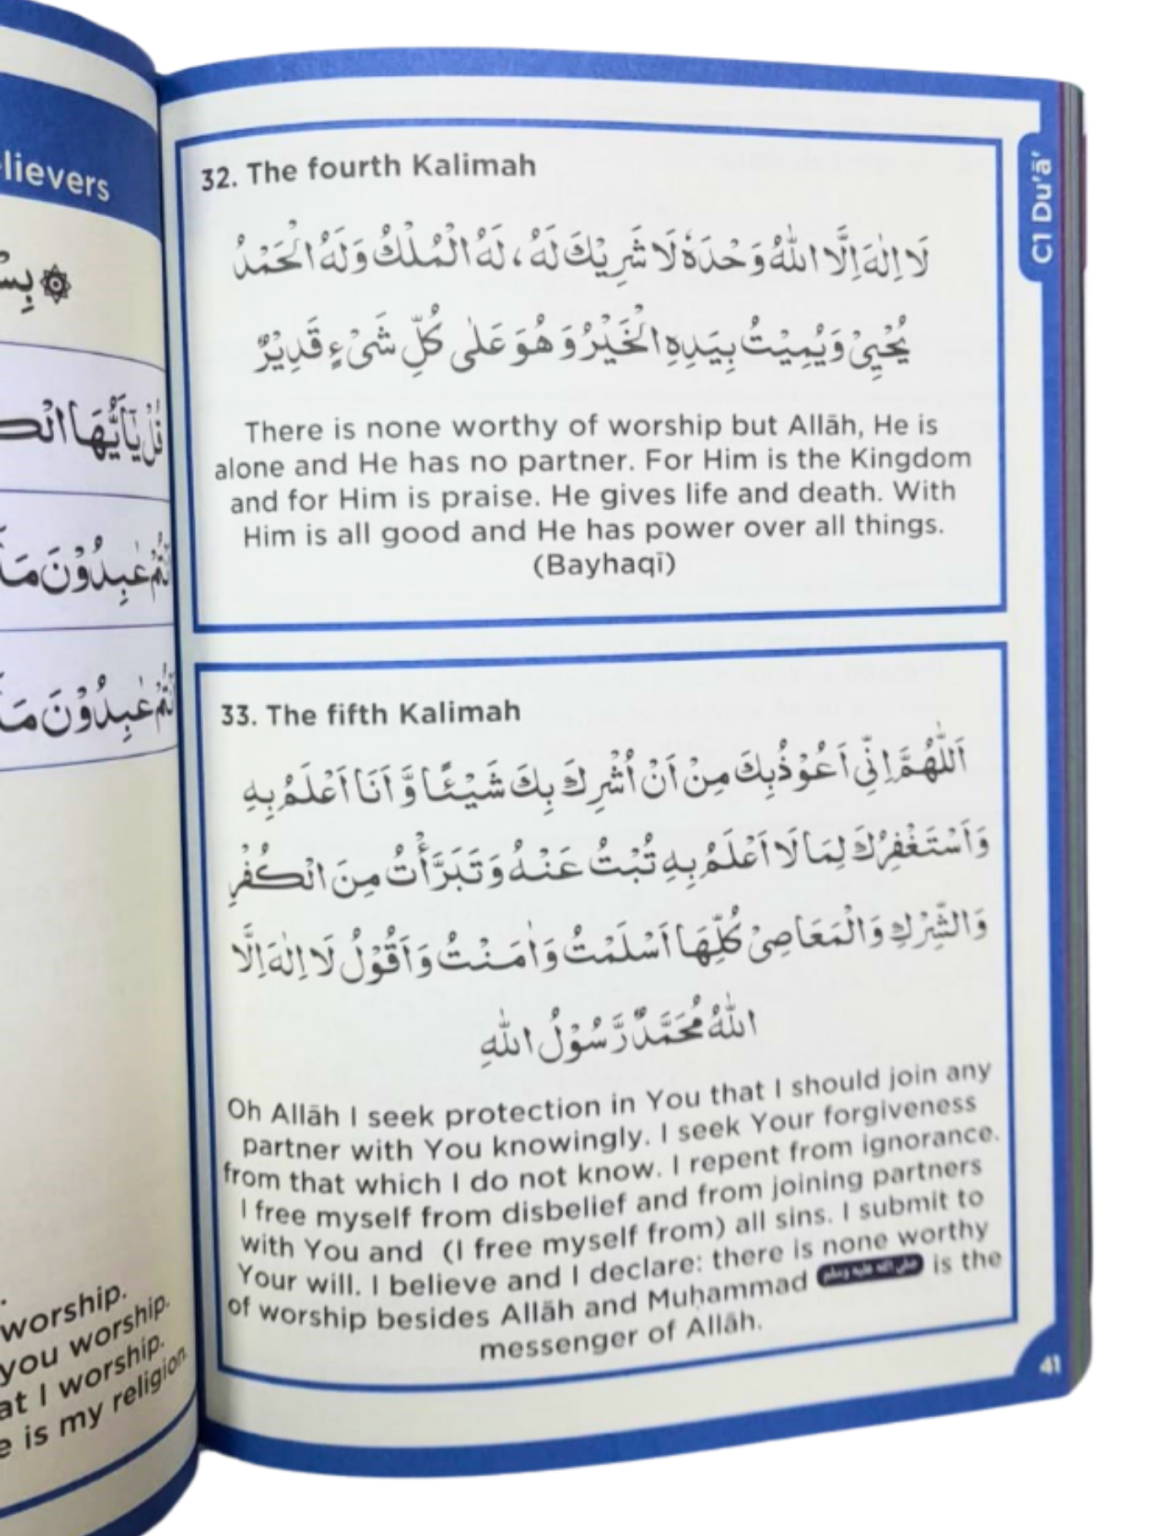 lievers
بِسْ
قُلْ يٰٓاَيُّهَا الْكٰ
عٰبِدُوْنَ مَا
عٰبِدُوْنَ مَا
worship.
you worship.
at I worship.
e is my religion.
32. The fourth Kalimah
لَا اِلٰهَ اِلَّا اللّٰهُ وَحْدَهٗ لَا شَرِيْكَ لَهُ، لَهُ الْمُلْكُ وَلَهُ الْحَمْدُ
يُحْيِيْ وَيُمِيْتُ بِيَدِهِ الْخَيْرُ وَهُوَ عَلٰى كُلِّ شَيْءٍ قَدِيْرٌ
There is none worthy of worship but Allāh, He is
alone and He has no partner. For Him is the Kingdom
and for Him is praise. He gives life and death. With
Him is all good and He has power over all things.
(Bayhaqī)
33. The fifth Kalimah
اَللّٰهُمَّ اِنِّيْ اَعُوْذُبِكَ مِنْ اَنْ اُشْرِكَ بِكَ شَيْئًا وَّ اَنَا اَعْلَمُ بِهِ
وَاَسْتَغْفِرُكَ لِمَا لَا اَعْلَمُ بِهِ تُبْتُ عَنْهُ وَتَبَرَّأْتُ مِنَ الْكُفْرِ
وَالشِّرْكِ وَالْمَعَاصِيْ كُلِّهَا اَسْلَمْتُ وَاٰمَنْتُ وَاَقُوْلُ لَا اِلٰهَ اِلَّا
اللّٰهُ مُحَمَّدٌ رَّسُوْلُ اللّٰهِ
Oh Allāh I seek protection in You that I should join any
partner with You knowingly. I seek Your forgiveness
from that which I do not know. I repent from ignorance.
I free myself from disbelief and from joining partners
with You and (I free myself from) all sins. I submit to
Your will. I believe and I declare: there is none worthy
of worship besides Allāh and Muḥammad صلى الله عليه وسلم is the
messenger of Allāh.
C1 Du'ā'
41